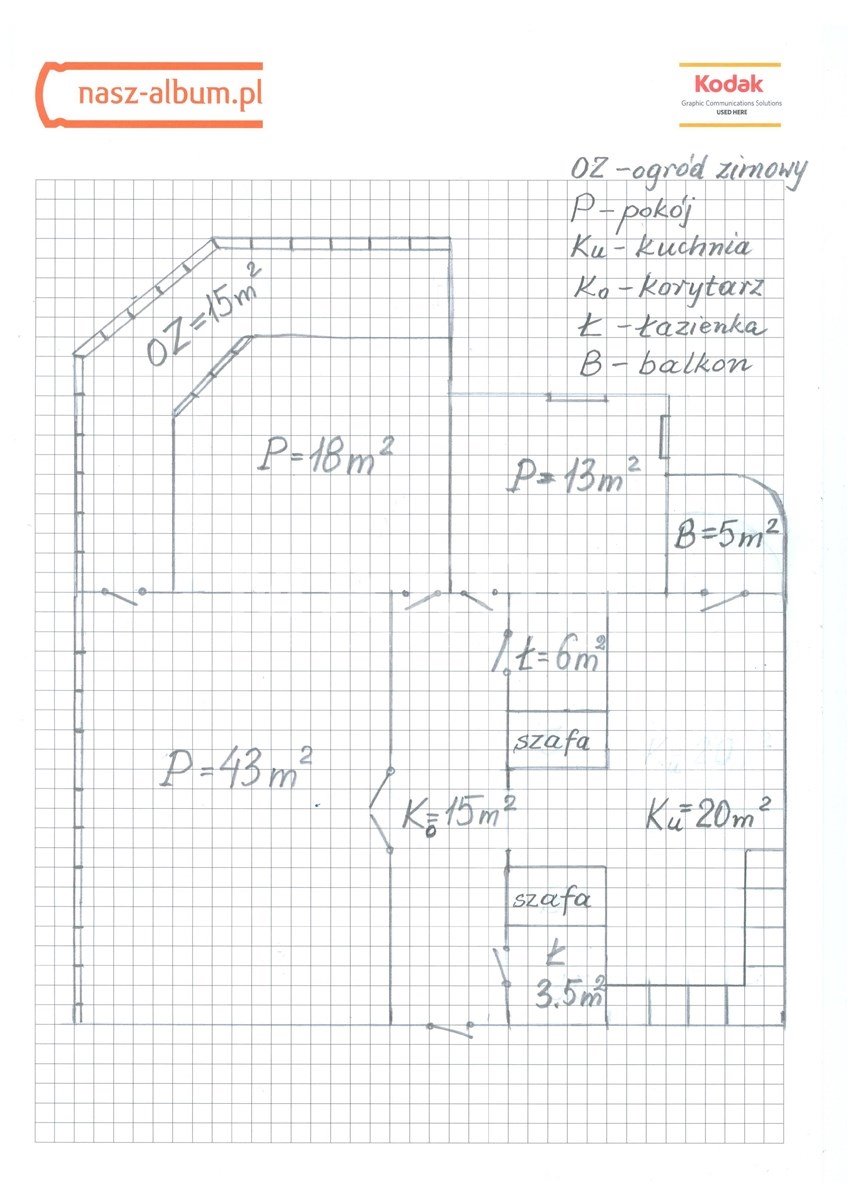 nasz-album.pl
Kodak
Graphic Communications Solutions
USED HERE
OZ - ogród zimowy
P - pokój
Ku - kuchnia
Ko - korytarz
Ł - łazienka
B - balkon
OZ = 15 m²
P = 18 m²
P = 13 m²
B = 5 m²
Ł = 6 m²
szafa
P = 43 m²
Ko = 15 m²
Ku = 20 m²
szafa
Ł
3.5 m²